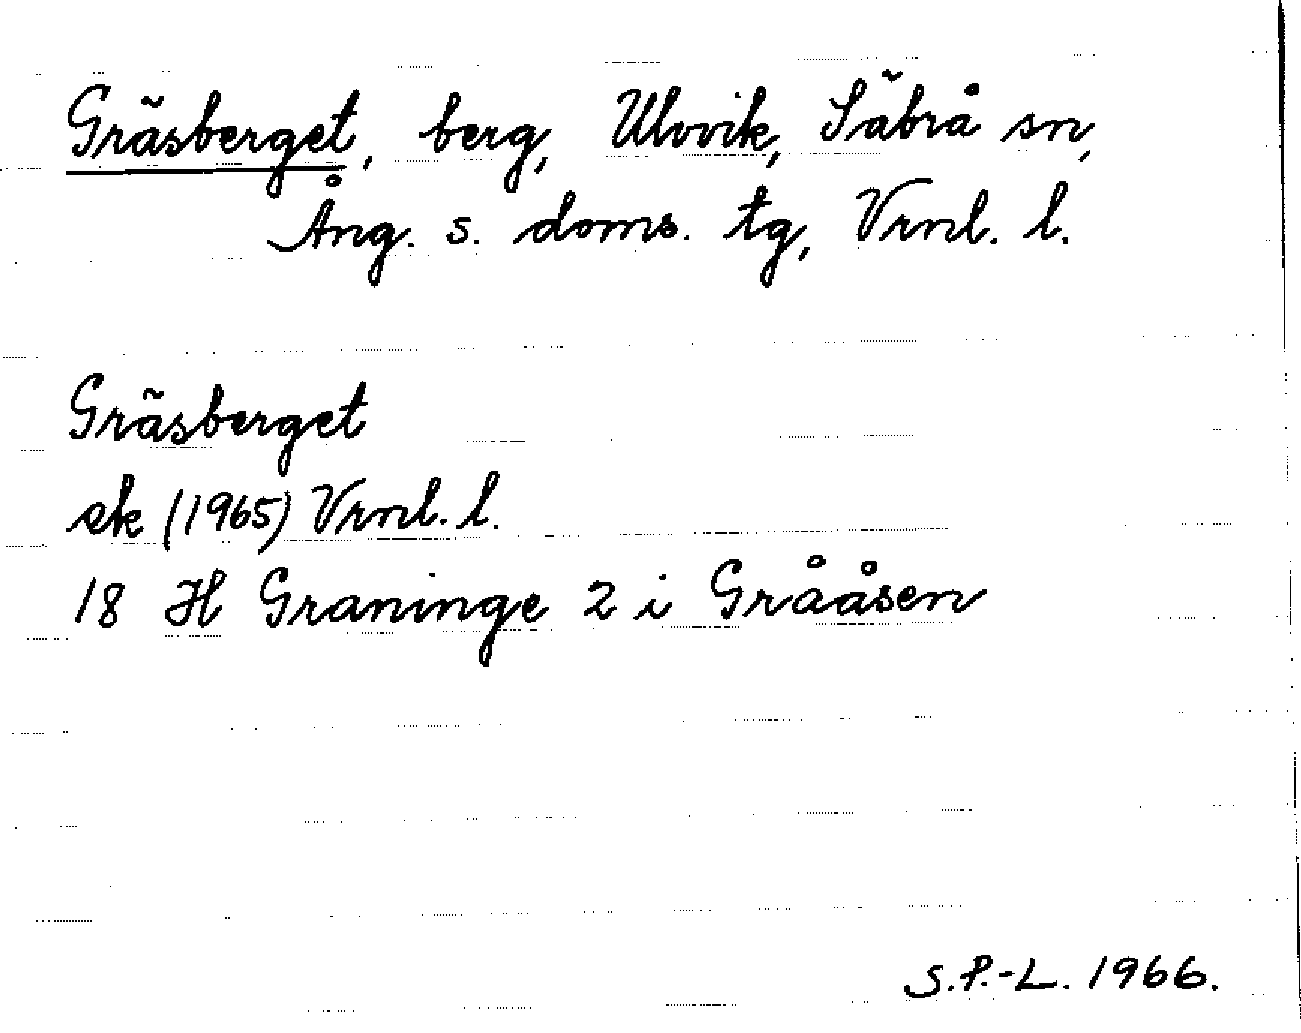 Gräsberget, berg, Ulvvik, Säbrå sn,
Ång. s. doms. tg, Vrnl. l.
Gräsberget
ek (1965) Vrnl. l.
18 H Graninge 2 i Grååsen
S.P.-L. 1966.